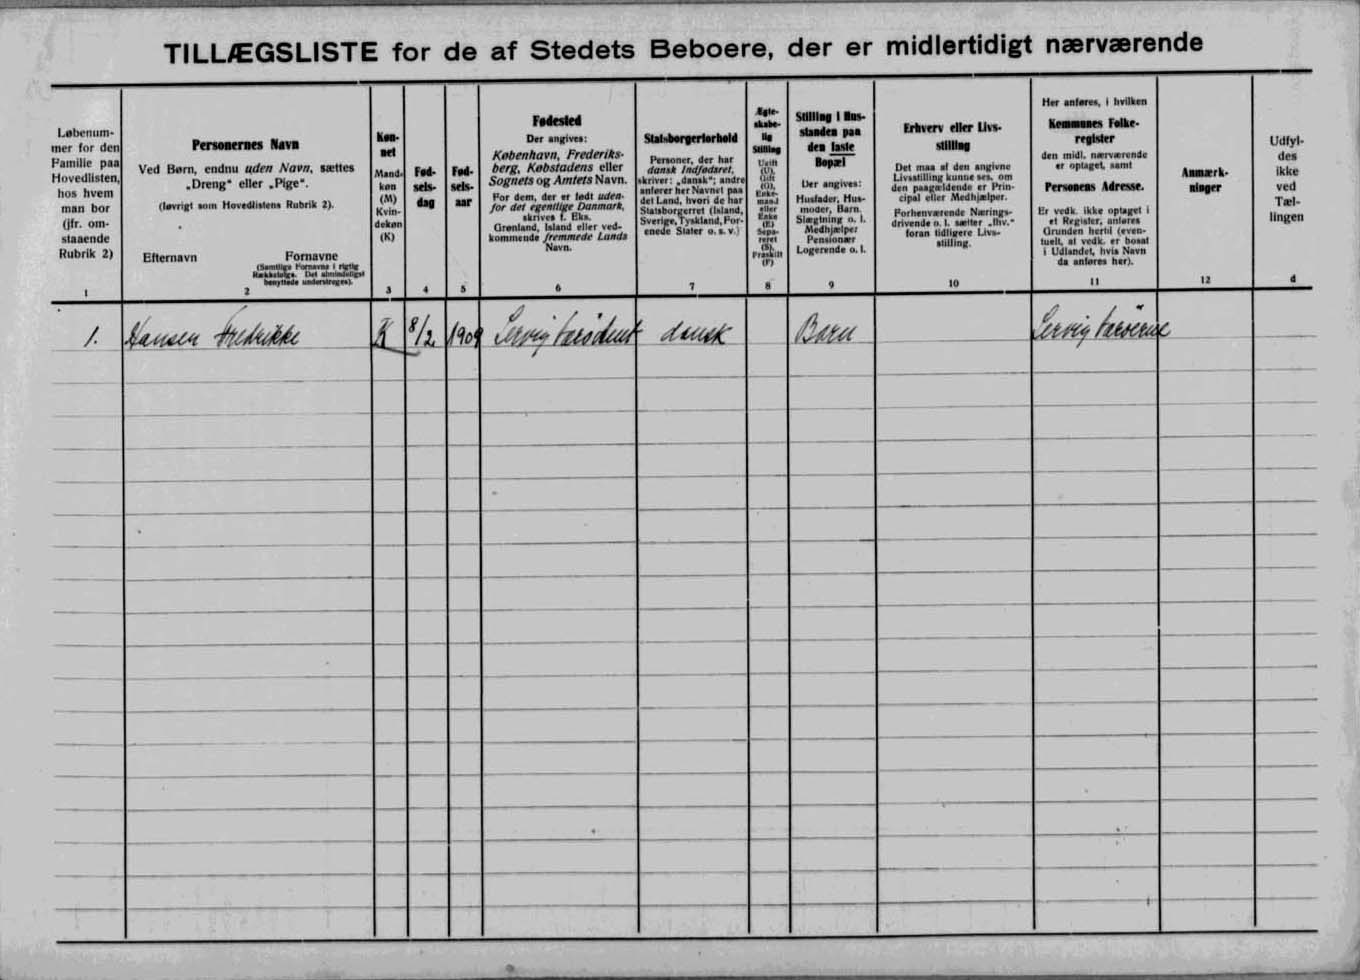 TILLÆGSLISTE for de af Stedets Beboere, der er midlertidigt nærværende
Løbenum-
mer for den
Familie paa
Hovedlisten,
hos hvem
man bor
(jfr. om-
staaende
Rubrik 2)
1
Personernes Navn
Ved Børn, endnu uden Navn, sættes
„Dreng“ eller „Pige“.
(Iøvrigt som Hovedlistens Rubrik 2).
Efternavn
Fornavne
(Samtlige Fornavne i rigtig
Rækkefølge. Det almindeligst
benyttede understreges).
2
Køn-
net
Mand-
køn
(M)
Kvin-
dekøn
(K)
3
Fød-
sels-
dag
4
Fød-
sels-
aar
5
Fødested
Der angives:
København, Frederiks-
berg, Købstadens eller
Sognets og Amtets Navn.
For dem, der er født uden-
for det egentlige Danmark,
skrives f. Eks.
Grønland, Island eller ved-
kommende fremmede Lands
Navn.
6
Statsborgerforhold
Personer, der har
dansk Indfødsret,
skriver: „dansk“; andre
anfører her Navnet paa
det Land, hvori de har
Statsborgerret (Island,
Sverige, Tyskland, For-
enede Stater o. s. v.)
7
Ægte-
skabe-
lig
Stilling
Ugift
(U),
Gift
(G),
Enke-
mand
eller
Enke
(E)
Sepa-
reret
(S),
Fraskilt
(F)
8
Stilling i Hus-
standen paa
den faste
Bopæl
Der angives:
Husfader, Hus-
moder, Barn,
Slægtning o. l.
Medhjælper
Pensionær
Logerende o. l.
9
Erhverv eller Livs-
stilling
Det maa af den angivne
Livsstilling kunne ses, om
den paagældende er Prin-
cipal eller Medhjælper.
Forhenværende Nærings-
drivende o. l. sætter „fhv.“
foran tidligere Livs-
stilling.
10
Her anføres, i hvilken
Kommunes Folke-
register
den midl. nærværende
er optaget, samt
Personens Adresse.
Er vedk. ikke optaget i
et Register, anføres
Grunden hertil (even-
tuelt, at vedk. er bosat
i Udlandet, hvis Navn
da anføres her).
11
Anmærk-
ninger
12
Udfyl-
des
ikke
ved
Tæl-
lingen
d
1. Hansen Fredrikke K 8/2 1909 dansk Barn